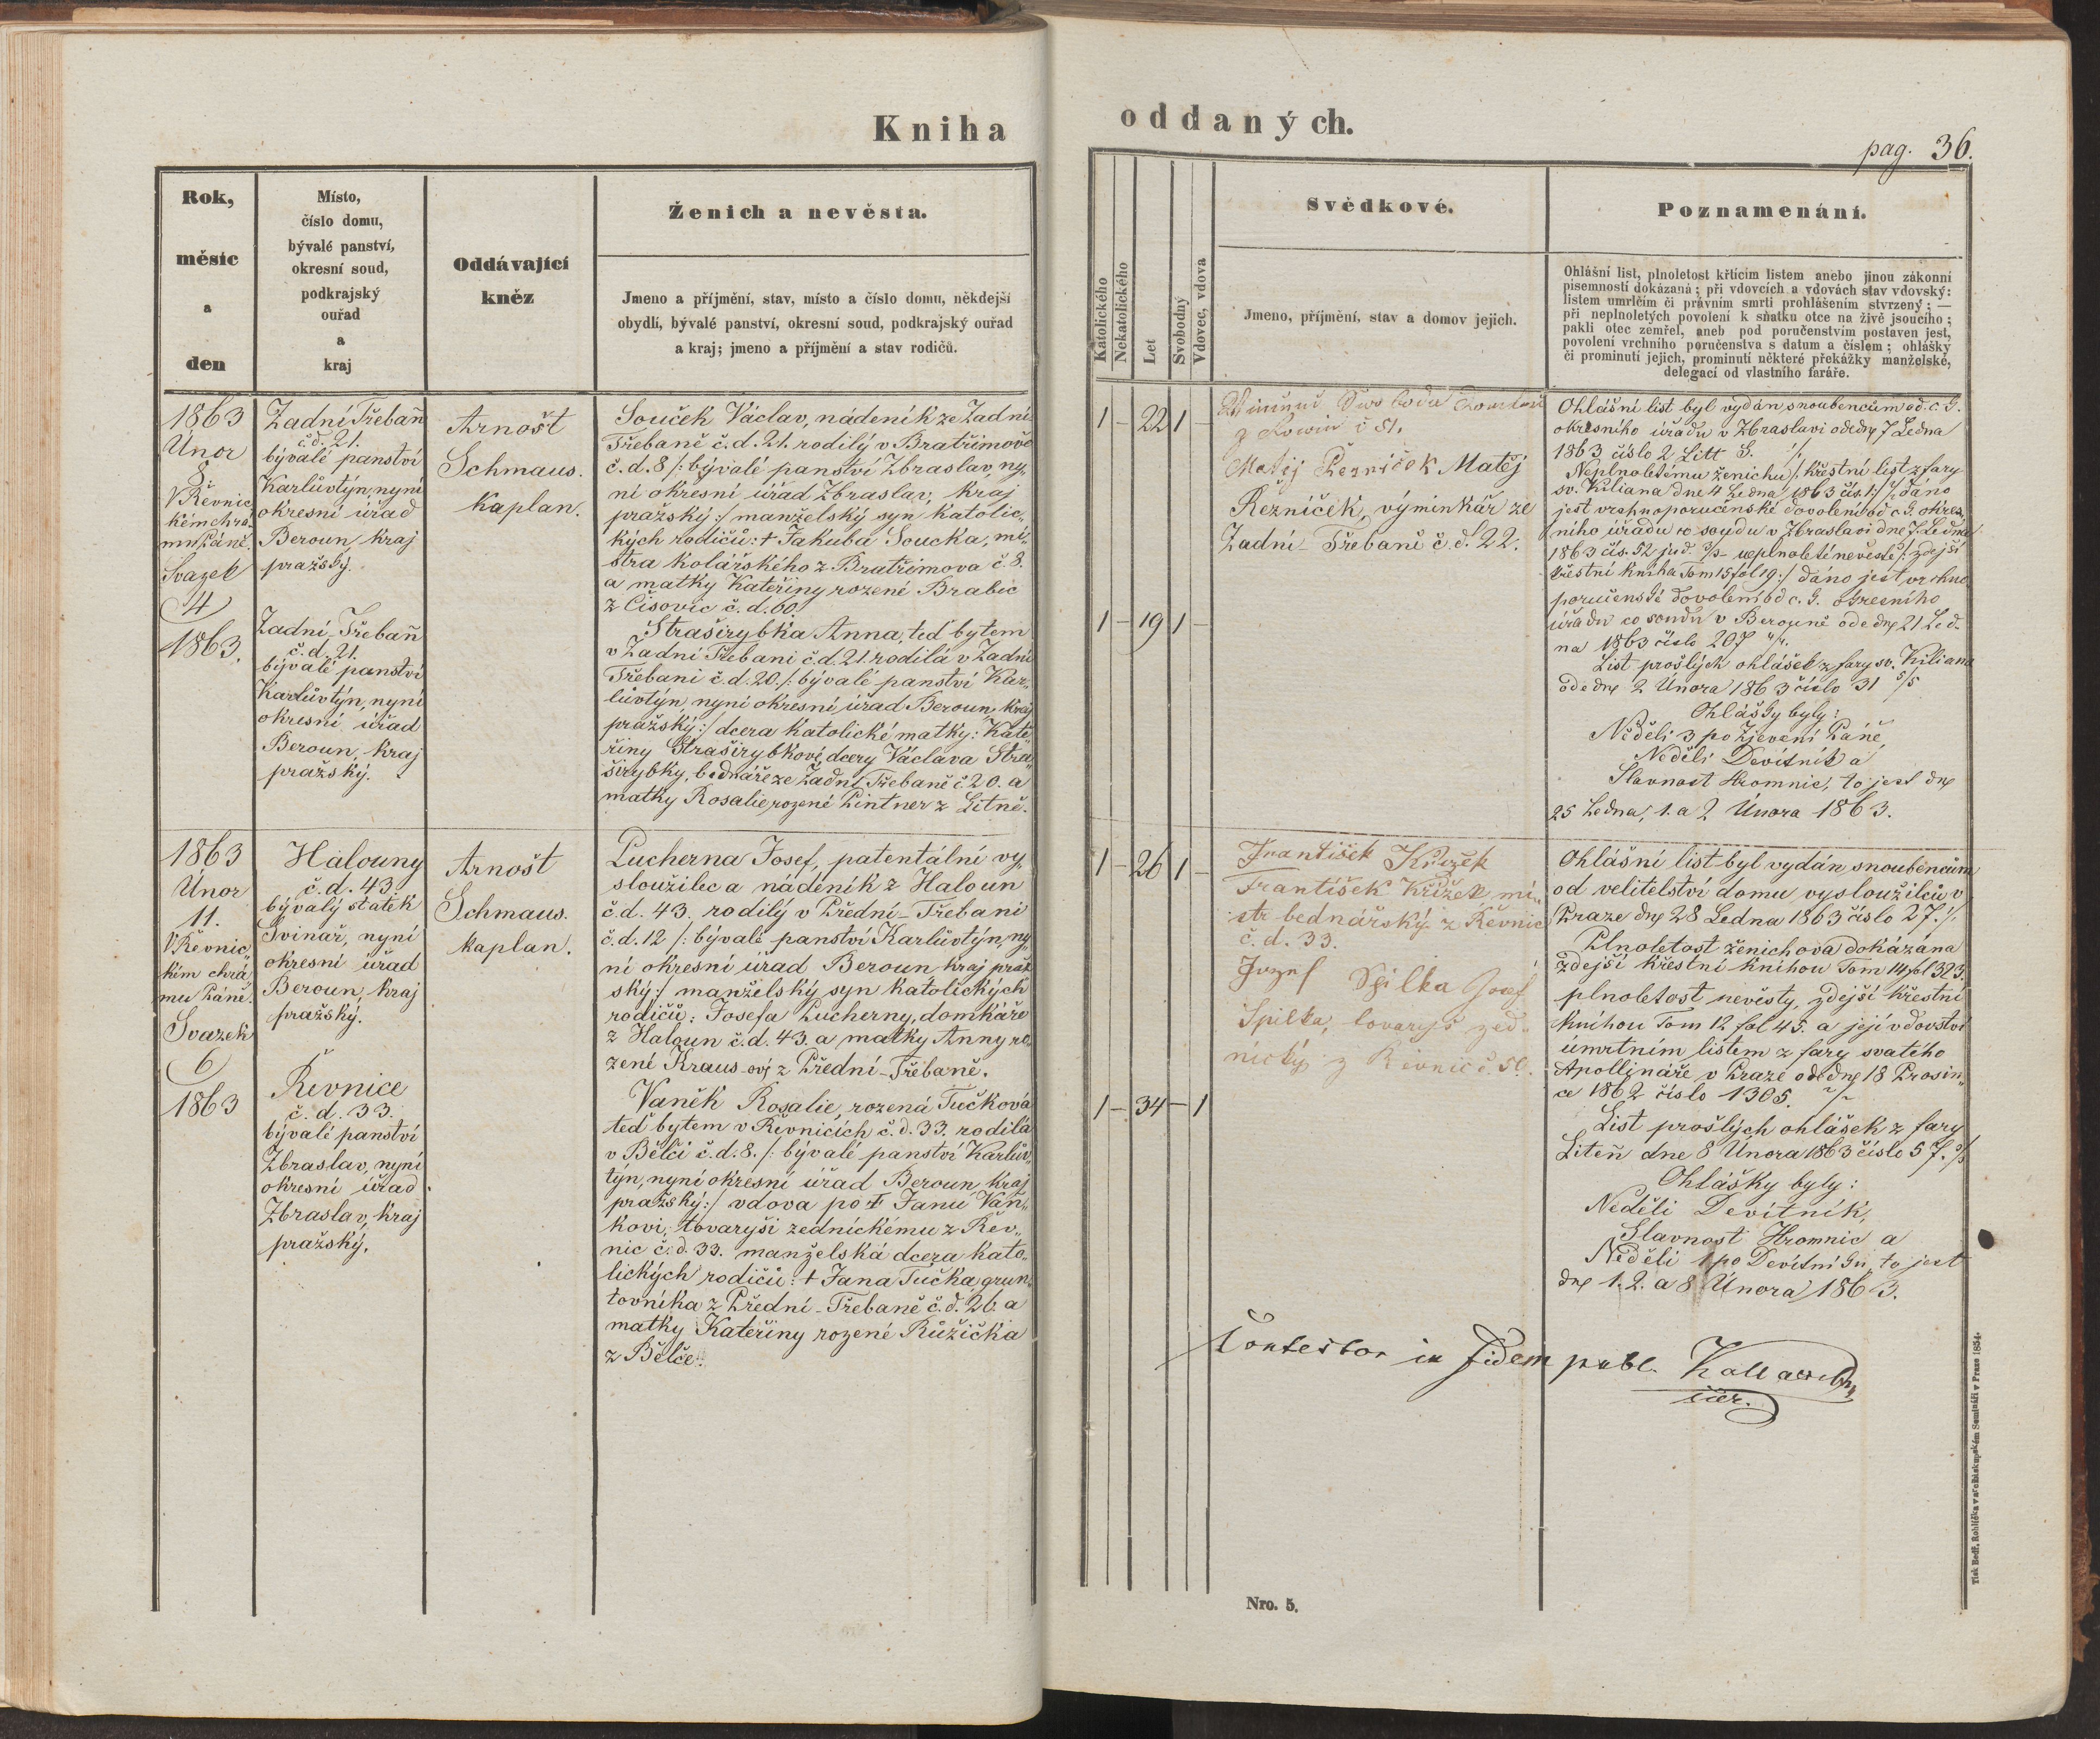 Kniha
oddaných.
pag. 36.
Rok,
měsíc
a
den
Místo,
číslo domu,
bývalé panství,
okresní soud,
podkrajský
ouřad
a
kraj
Oddávající
kněz
Ženich a nevěsta.
Jmeno a příjmění, stav, místo a číslo domu, někdejší
obydlí, bývalé panství, okresní soud, podkrajský ouřad
a kraj; jmeno a příjmění a stav rodičů.
Katolického
Nekatolického
Let
Svobodný
Vdovec, vdova
Svědkové.
Jmeno, příjmění, stav a domov jejich.
Poznamenání.
Ohlášní list, plnoletost křticím listem anebo jinou zákonní
písemností dokázaná; při vdovcích a vdovách stav vdovský:
listem umrlčím či právním smrti prohlášením stvrzený; —
při neplnoletých povolení k sňatku otce na živě jsoucího;
pakli otec zemřel, aneb pod poručenstvím postaven jest,
povolení vrchního poručenstva s datum a číslem; ohlášky
či prominutí jejich, prominutí některé překážky manželské,
delegací od vlastního faráře.
1863
Únor
8.
V Řevnic
kém chrá
mu Páně.
Svazek
4
1863.
Zadní Třebaň
č.d. 21.
bývalé panství
Karlůvtýn, nyní
okresní úřad
Beroun, kraj
pražský.
Zadní-Třebaň
č.d. 21.
bývalé panství
Karlůvtýn, nyní
okresní úřad
Beroun, kraj
pražský.
Arnošt
Schmaus.
kaplan.
Souček Václav, nádeník ze Zadní
Třebaně č.d. 21. rodilý v Bratřimově
č.d. 8 /: bývalé panství Zbraslav, ny-
ní okresní úřad Zbraslav, kraj
pražský :/ manželský syn katolic-
kých rodičů: † Jakuba Součka, mi-
stra kolářského z Bratřimova č. 8.
a matky Kateřiny rozené Brabic
z Čisovic č.d. 60.
Straširybka Anna, teď bytem
v Zadní Třebani č.d. 21. rodilá v Zadní
Třebani č.d. 20. /: bývalé panství Kar-
lůvtýn, nyní okresní úřad Beroun, kraj
pražský :/ dcera katolické matky: Kate
řiny Straširybkovi, dcery Václava Stra
širybky, bednáře ze Zadní Třebaně č. 20. a
matky Rosalie, rozené Pintner z Litně.
1 — 22 1 —
1 — 19 1 —
Swoboda
č 51.
Matěj Řezníček Matěj
Řezníček, výminkář ze
Zadní-Třebaně č.d. 22.
Ohlášní list byl vydán snoubencům od c. k.
okresního úřadu v Zbraslavi ode dne 7 Ledna
1863 číslo 2 Litt S.
Neplnoletému ženichu /: křestní list z fary
sv. Kiliana dne 4 Ledna 1863 čís. 1 :/ dáno
jest vrchnoporučenské dovolení od c. k. okres-
ního úřadu co soudu v Zbraslavi dne 7 Ledna
1863 čís. 52 jud. neplnoleté nevěstě /: zdejší
křestní kniha Tom 15 fol 19 :/ dáno jest vrchno
poručenské dovolení od c. k. okresního
úřadu co soudu v Berouně ode dne 21 Led-
na 1863 číslo 207
List prošlých ohlášek z fary sv. Kiliana
ode dne 2 Února 1863 číslo 31
Ohlášky byly:
Neděli 3 po Zjevení Páně,
Neděli Devítník a
Slavnost Hromnic, to jest dne
25 Ledna, 1. a 2 Února 1863.
1863
Únor
11.
V Řevnic
kém chrá
mu Páně.
Svazek
6
1863
Halouny
č.d. 43.
bývalý statek
Svinař, nyní
okresní úřad
Beroun, kraj
pražský.
Řevnice
č.d. 33.
bývalé panství
Zbraslav, nyní
okresní úřad
Zbraslav, kraj
pražský.
Arnošt
Schmaus.
kaplan.
Lucherna Josef, patentální vy-
sloužilec a nádeník z Haloun
č.d. 43. rodilý v Přední-Třebani
č.d. 12 /: bývalé panství Karlůvtýn, ny-
ní okresní úřad Beroun kraj praž
ský :/ manželský syn katolických
rodičů: Josefa Lucherny, domkáře
z Haloun č.d. 43. a matky Anny ro-
zené Kraus-ovj z Přední-Třebaně.
Vaněk Rosalie, rozená Tučková
teď bytem v Řevnicích č.d. 33. rodilá
v Bělči č.d. 8. /: bývalé panství Karlův-
týn, nyní okresní úřad Beroun kraj
pražský :/ vdova po † Janu Vaň-
kovi, tovaryši zednickému z Řev-
nic č.d. 33. manželská dcera kato-
lických rodičů: † Jana Tučka, grun-
tovníka z Přední-Třebaně č.d. 26. a
matky Kateřiny rozené Růžička
z Bělče.
1 — 26 1 —
1 — 34 — 1
František Křížek
František Křížek, mi-
str bednářský z Řevnic
č.d. 33.
Jozef Spilka Josef
Spilka, tovaryš zed-
nický z Řevnic č. 50.
Ohlášní list byl vydán snoubencům
od velitelství domu vysloužilců v
Praze dne 28 Ledna 1863 číslo 27.
Plnoletost ženichova dokázána
zdejší křestní knihou Tom 14 fol 323.
plnoletost nevěsty, zdejší křestní
knihou Tom 12 fol 45. a její vdovství
úmrtním listem z fary svatého
Apollináře v Praze ode dne 18 Prosin-
ce 1862 číslo 1305.
List prošlých ohlášek z fary
Liteň dne 8 Února 1863 číslo 57.
Ohlášky byly:
Neděli Devítník,
Slavnost Hromnic a
Neděli 1 po Devítníku, to jest
dne 1. 2. a 8 Února 1863.
Contestor in fidem publ.
Nro. 5.
Tisk Bedř. Rohlíčka v arcibiskupském Semináři v Praze 1854.